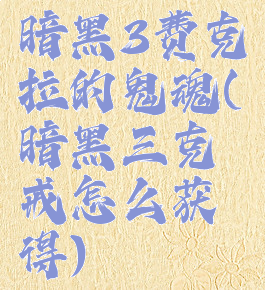 暗黑3费克
拉的鬼魂(
暗黑三克
戒怎么获
得)